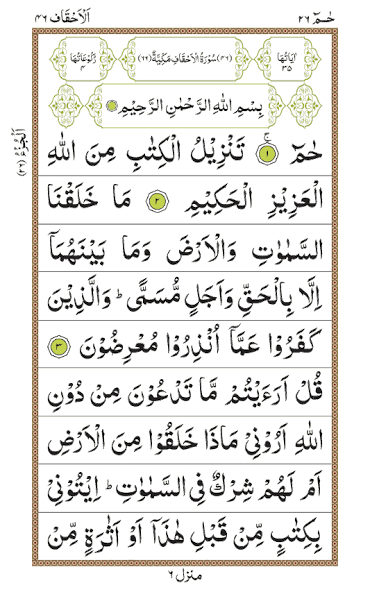 حٰمٓ ٢٦
اَلْاَحْقَاف ٤٦
اٰیَاتُهَا ٣٥
(٤٦) سُوْرَةُ الْاَحْقَافِ مَكِّیَّةٌ (٦٦)
رُكُوْعَاتُهَا ٤
بِسْمِ اللّٰهِ الرَّحْمٰنِ الرَّحِیْمِ
اَلْجُزْءُ (٢٦)
حٰمٓ ۚ ١ تَنْزِیْلُ الْكِتٰبِ مِنَ اللّٰهِ
الْعَزِیْزِ الْحَكِیْمِ ٢ مَا خَلَقْنَا
السَّمٰوٰتِ وَالْاَرْضَ وَمَا بَیْنَهُمَاۤ
اِلَّا بِالْحَقِّ وَاَجَلٍ مُّسَمًّی ؕ وَالَّذِیْنَ
كَفَرُوْا عَمَّاۤ اُنْذِرُوْا مُعْرِضُوْنَ ٣
قُلْ اَرَءَیْتُمْ مَّا تَدْعُوْنَ مِنْ دُوْنِ
اللّٰهِ اَرُوْنِیْ مَاذَا خَلَقُوْا مِنَ الْاَرْضِ
اَمْ لَهُمْ شِرْكٌ فِی السَّمٰوٰتِ ؕ اِیْتُوْنِیْ
بِكِتٰبٍ مِّنْ قَبْلِ هٰذَاۤ اَوْ اَثٰرَةٍ مِّنْ
منزل ٦